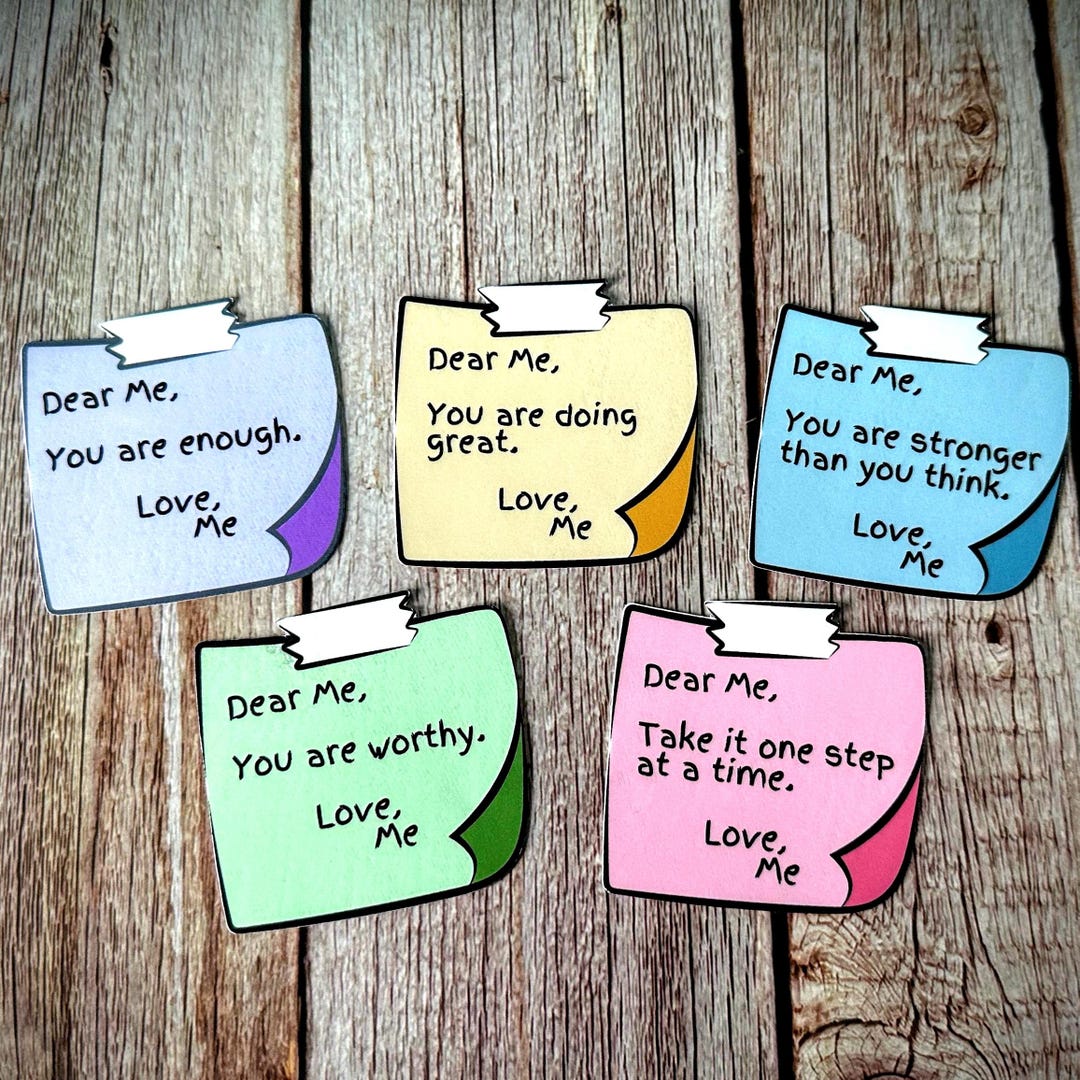 Dear Me,
You are enough.
Love,
Me
Dear Me,
You are doing
great.
Love,
Me
Dear Me,
You are stronger
than you think.
Love,
Me
Dear Me,
You are worthy.
Love,
Me
Dear Me,
Take it one step
at a time.
Love,
Me